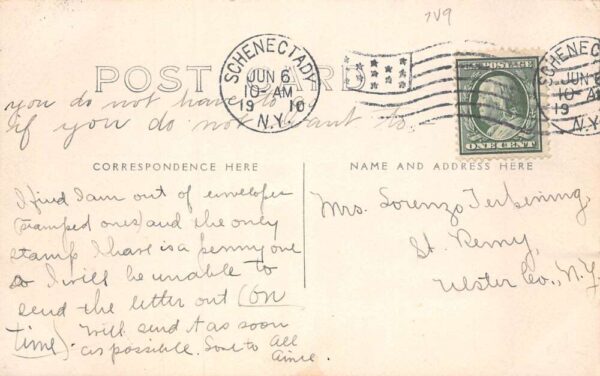 7V9
SCHENECTADY
JUN 6
10-AM
1910
N.Y.
SCHENEC
JUN 6
10-AM
19
N.Y.
U.S. POSTAGE
ONE CENT
POST CARD
you do not have to
if you do not want to.
CORRESPONDENCE HERE
NAME AND ADDRESS HERE
I find I am out of envelopes
(stamped ones) and the only
stamp I have is a penny one
so I will be unable to
send the letter out (on
time). Will send it as soon
as possible. Love to All
Aimee.
Mrs. Lorenzo Terbining
St. Remy,
Ulster Co., N.Y.